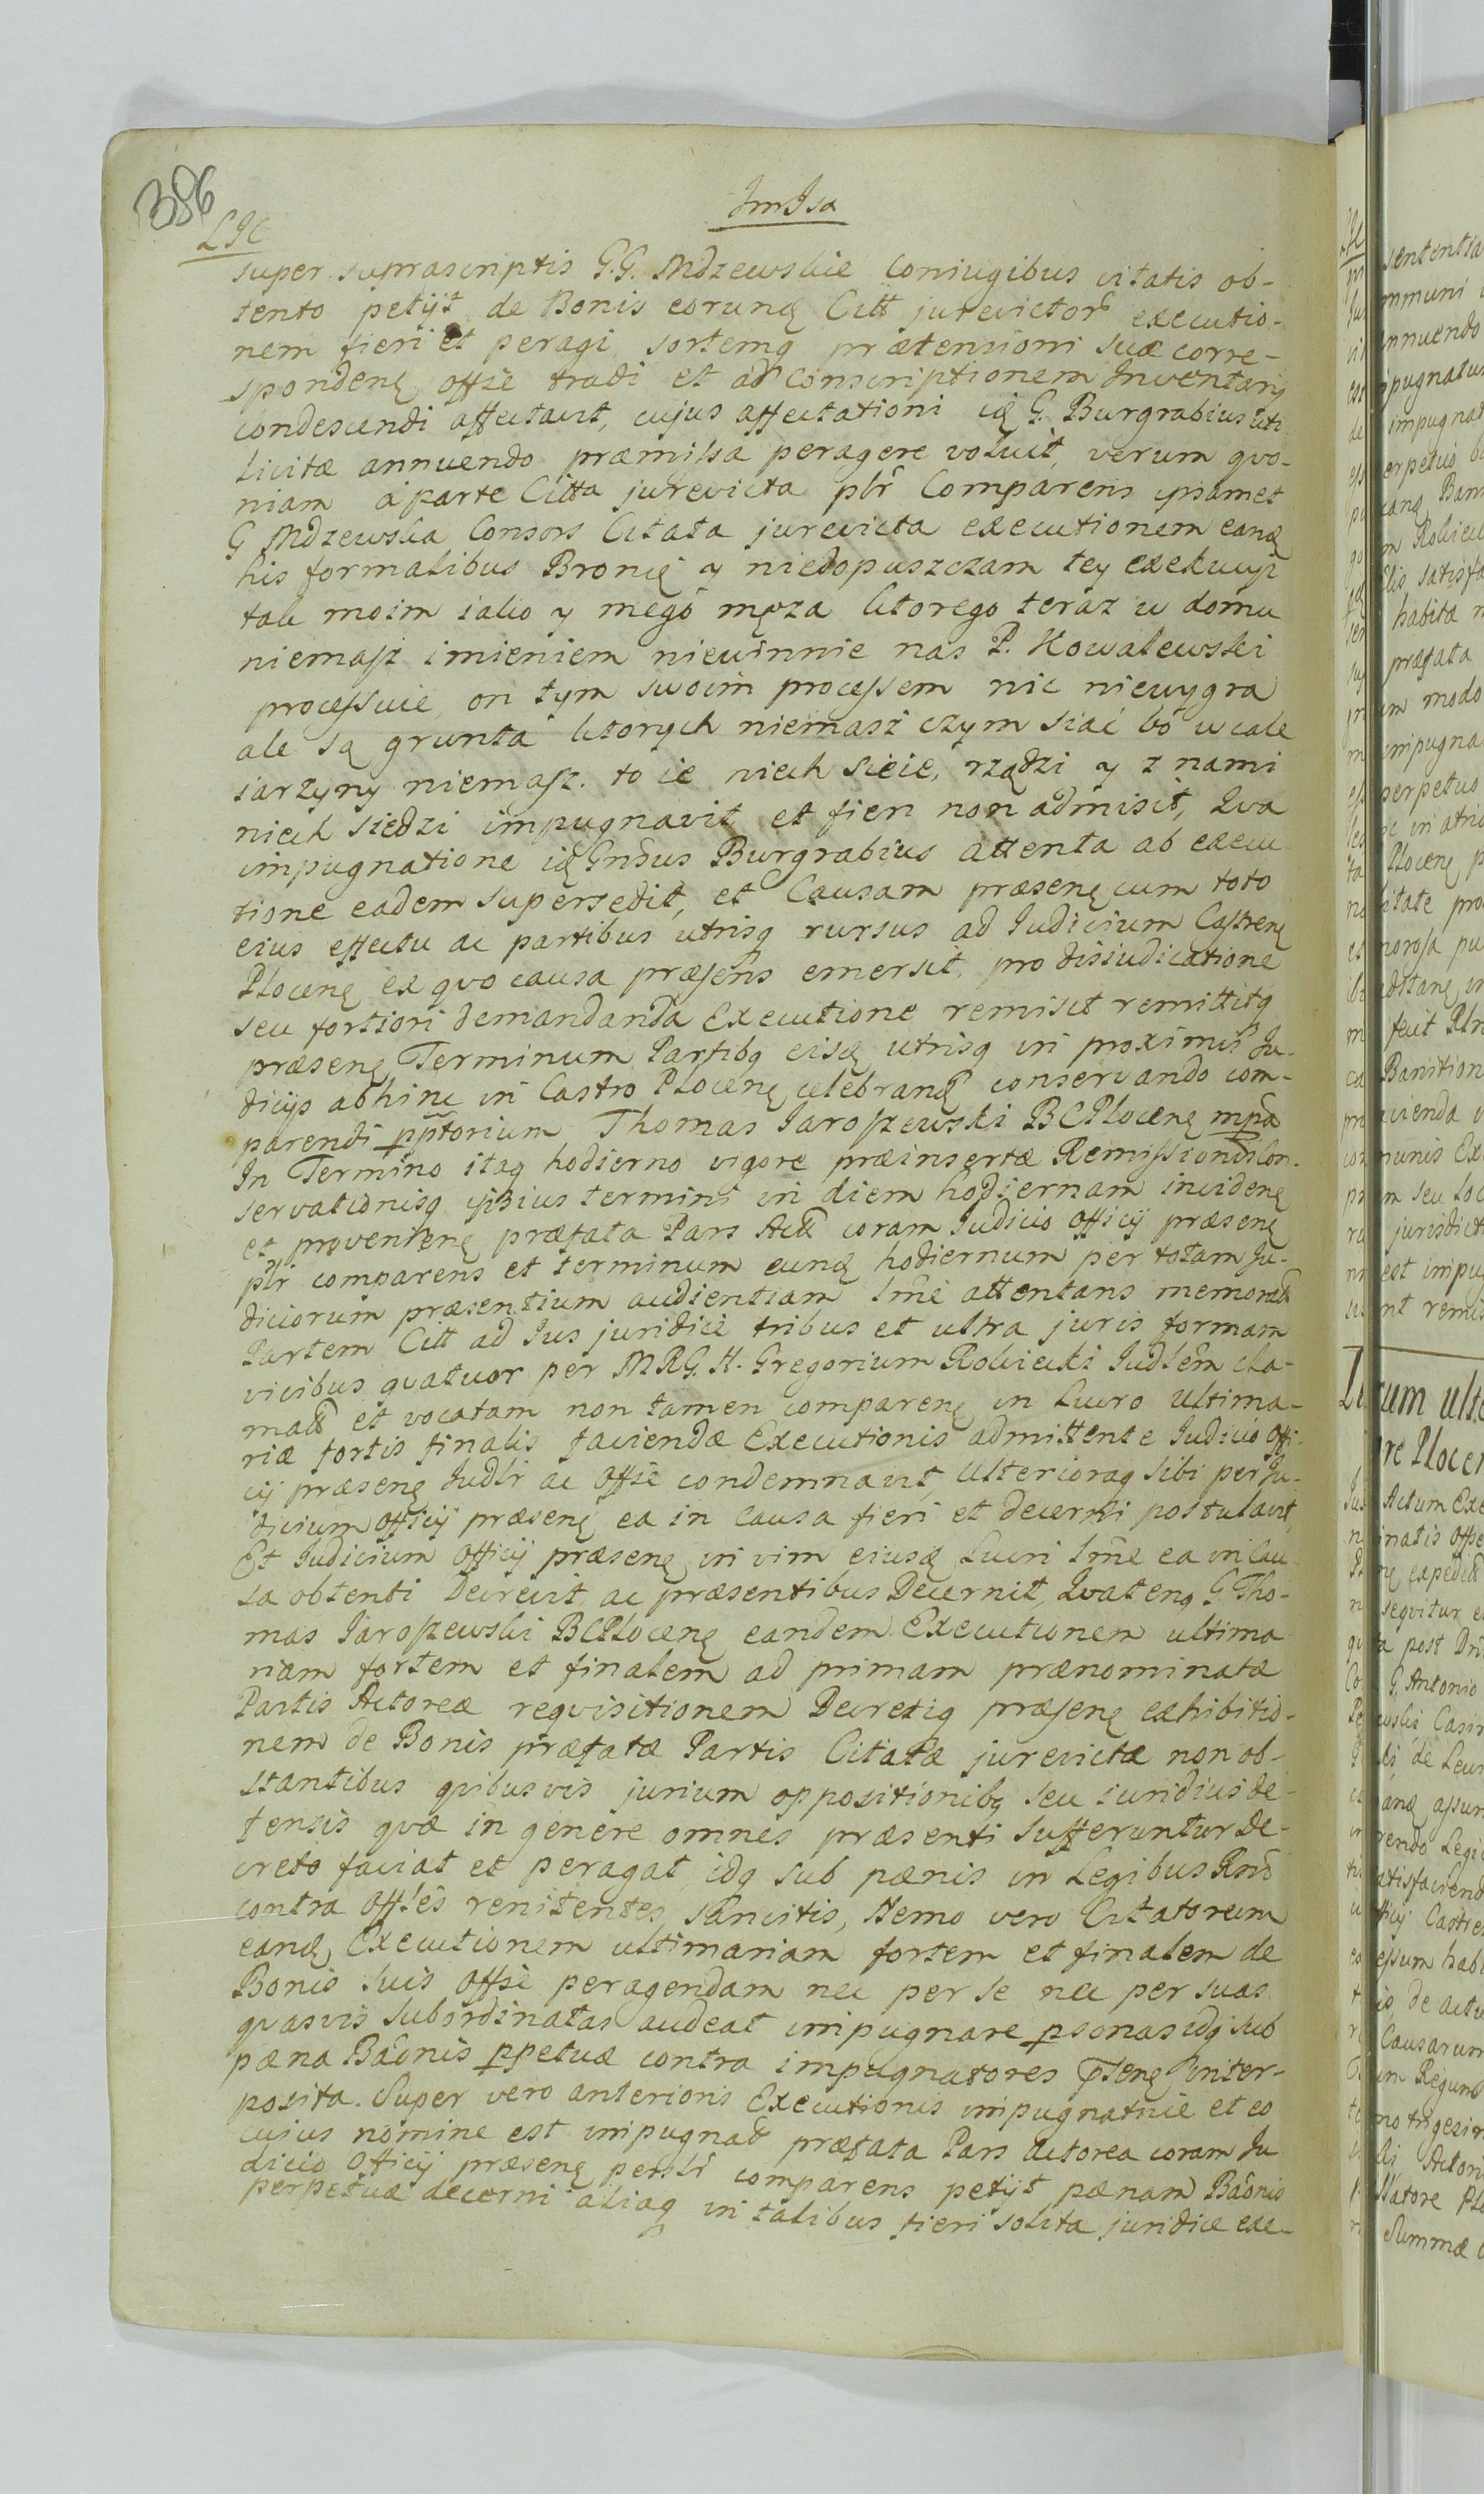 386
ImIsa
LIC
super suprascriptis G.G. Mdzewskie Coniugibus citatis ob-
tento petijt de Bonis eorunę Citt jurevictor executio-
nem fieri et peragi, sortemq prætensioni suæ corre-
spondenę offse tradi et ad Conscriptionem Inventarij
condescendi affectavit, cujus affectationi ię G. Burgrabius uti
licitæ annuendo præmissa peragere voluit, verum qvo-
niam à parte Citta jurevicta plr Comparens ipsamet
G Mdzewska Consors Citata jurevicta executionem eanę
his formalibus Bronię y niedopuszczam tey exekucyi
tak moim iako y mego męza ktorego teraz w domu
niemasz imieniem niewinnie nas P. Kowalewski
processuie, on tym swoim processem nic niewygra
ale są grunta ktorych niemasz czym siać bo wcale
iarzyny niemasz. to ie niech sieie, rządzi y z nami
niech siedzi impugnavit et fieri non admisit, Qva
impugnatione ię Gnsus Burgrabius attenta ab execu-
tione eadem supersedit, et Causam præsenę cum toto
eius effectu ac partibus utrisq rursus ad Iudicium Castrenę
Plocenę ex qvo causa præsens emersit, pro disiudicatione
seu fortiori demandanda Executione remisit remittitq
præsenę Terminum Partibq eisę utrisq in proximis Ju-
dicijs abhinc in Castro Plocenę celebranę conservando com-
parendi pptorium, Thomas Jaroszewski BCPlocenę mpa
In Termino itaq hodierno vigore præinsertæ Remissionis Con-
servationisq ipsius termini in diem hodiernam incidenę
et provenienę præfata Pars Act coram Iudicio Officij præsenę
plr comparens et terminum eunę hodiernum per totam Ju-
diciorum præsentium audientiam lme attentans memorat
Partem Citt ad Jus juridice tribus et ultra juris formam
vicibus qvatuor per MRG. H. Gregorium Rokicki Iudlem cla-
mat et vocatam non tamen comparenę in Lucro ultima-
riæ fortis finalis faciendæ Executionis admittente Iudicio Offi-
cij præsenę Iudlr ac Offse condemnavit, Ulterioraq sibi per Ju-
dicium Officij præsenę ea in Causa fieri et decerni postulavit,
Et Iudicium Officij præsenę in vim eiusę Lucri lme ea in Cau-
sa obtenti Decrevit ac præsentibus Decernit, Qvatenq G. Tho-
mas Jaroszewski BCPlocenę eandem Executionem ultima
riam fortem et finalem ad primam prænominatæ
Partis Actoreæ reqvisitionem Decretiq præsenę exhibitio-
nem de Bonis præfatæ Partis Citatæ jurevictæ non ob-
stantibus qvibusvis jurium oppositionibq seu iuridicis de-
fensis qvæ in genere omnes præsenti sufferuntur De-
creto faciat et peragat idq sub pænis in Legibus Rnd
contra Offles renitentes sancitis, Nemo vero Citatorum
eanę Executionem ultimariam fortem et finalem de
Bonis suis Offse peragendam nec per se nec per suas
qvasvis subordinatas audeat impugnare psonas idq sub
pæna Baonis ppetuæ contra impugnatores pstenę inter-
posita. Super vero anterioris Executionis impugnatrice et eo
cuius nomine est impugnat præfata Pars Actorea coram Ju
dicio Officij præsenę perslr comparens petijt pænam Baonis
perpetuæ decerni aliaq in talibus fieri solita juridice exe-
sententia
mmuni
nnuendo
impugnat
erpetuo
Rokicki
satisfa
habita
præfata
modo
impugna
perpetuo
in atrio
Plocenę
itate
Banition
seu
jurisdict
est impu
rum ulte
re Plocen
Actum Exe
natis Offse
seqvitur
post
G. Antonio
de
assum
rendo Legi
satisfaciend
Castre
essum hab
de actu
Causarum
Regund
trigesim
Actori
Summæ